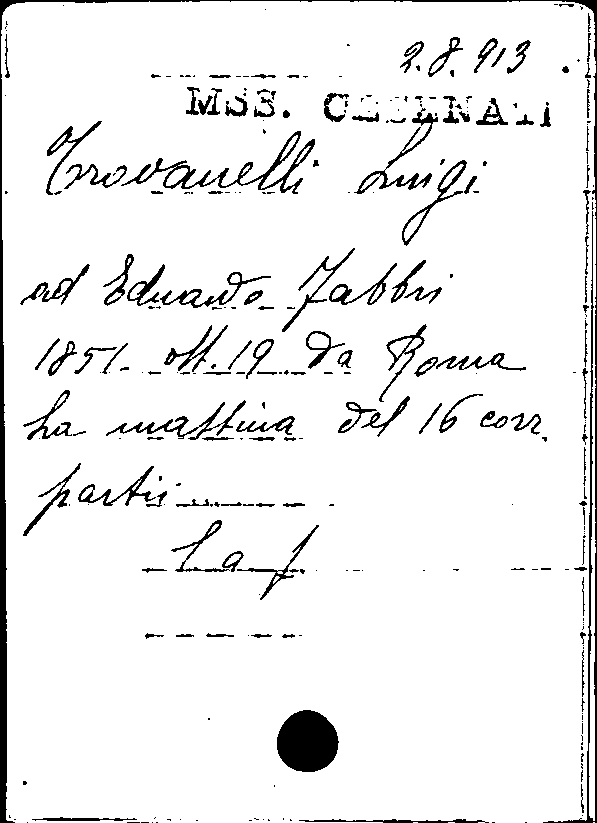 2.8.913.
MSS. CESENATI
Trovanelli Luigi
ad Eduardo Fabbri
1851. ott. 19 da Roma
La mattina del 16 corr.
partii ...
l a f